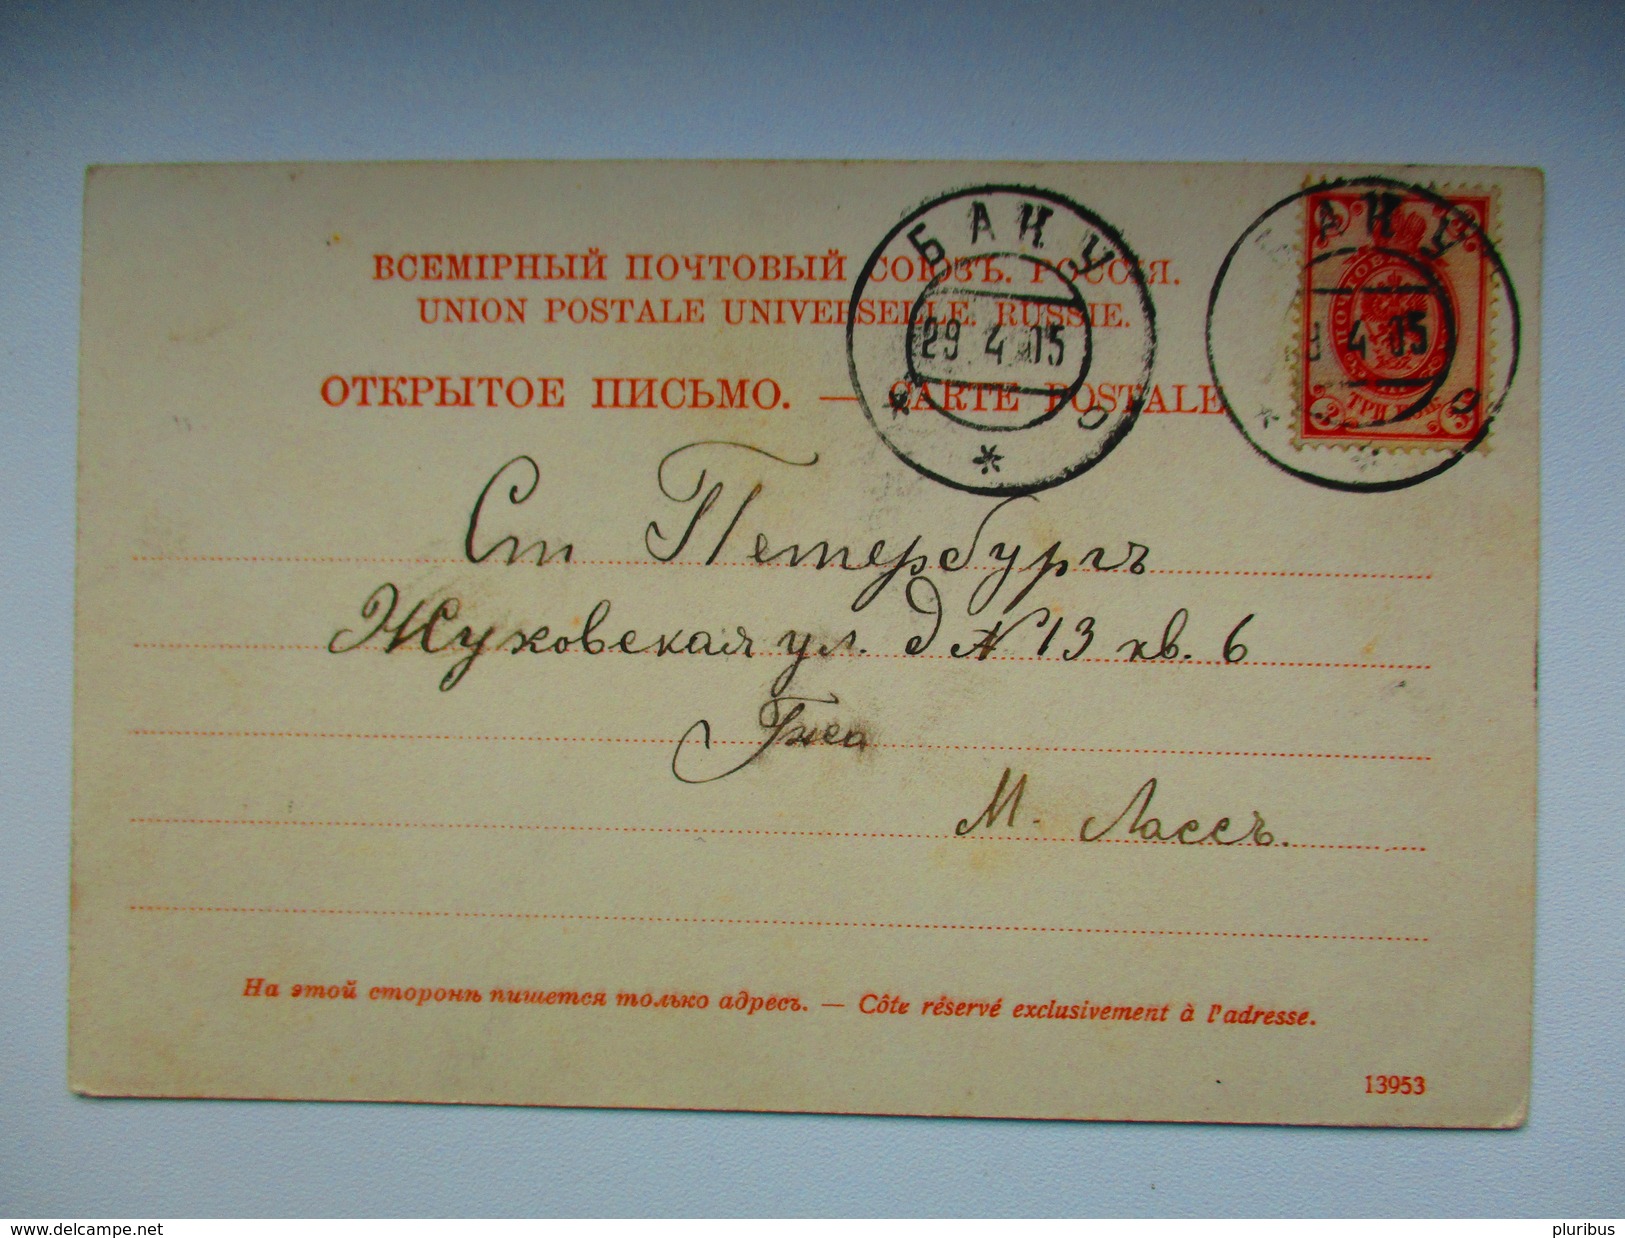 ВСЕМІРНЫЙ ПОЧТОВЫЙ СОЮЗЪ. РОССІЯ.
UNION POSTALE UNIVERSELLE. RUSSIE.
ОТКРЫТОЕ ПИСЬМО. — CARTE POSTALE
БАКУ
29 4 05
БАКУ
4 05
ТРИ КОП.
Ст Петербургъ
Жуковская ул. д № 13 кв. 6
Гжа
М. Лассъ.
На этой сторонѣ пишется только адресъ. — Côte réservé exclusivement à l'adresse.
13953
www.delcampe.net
pluribus